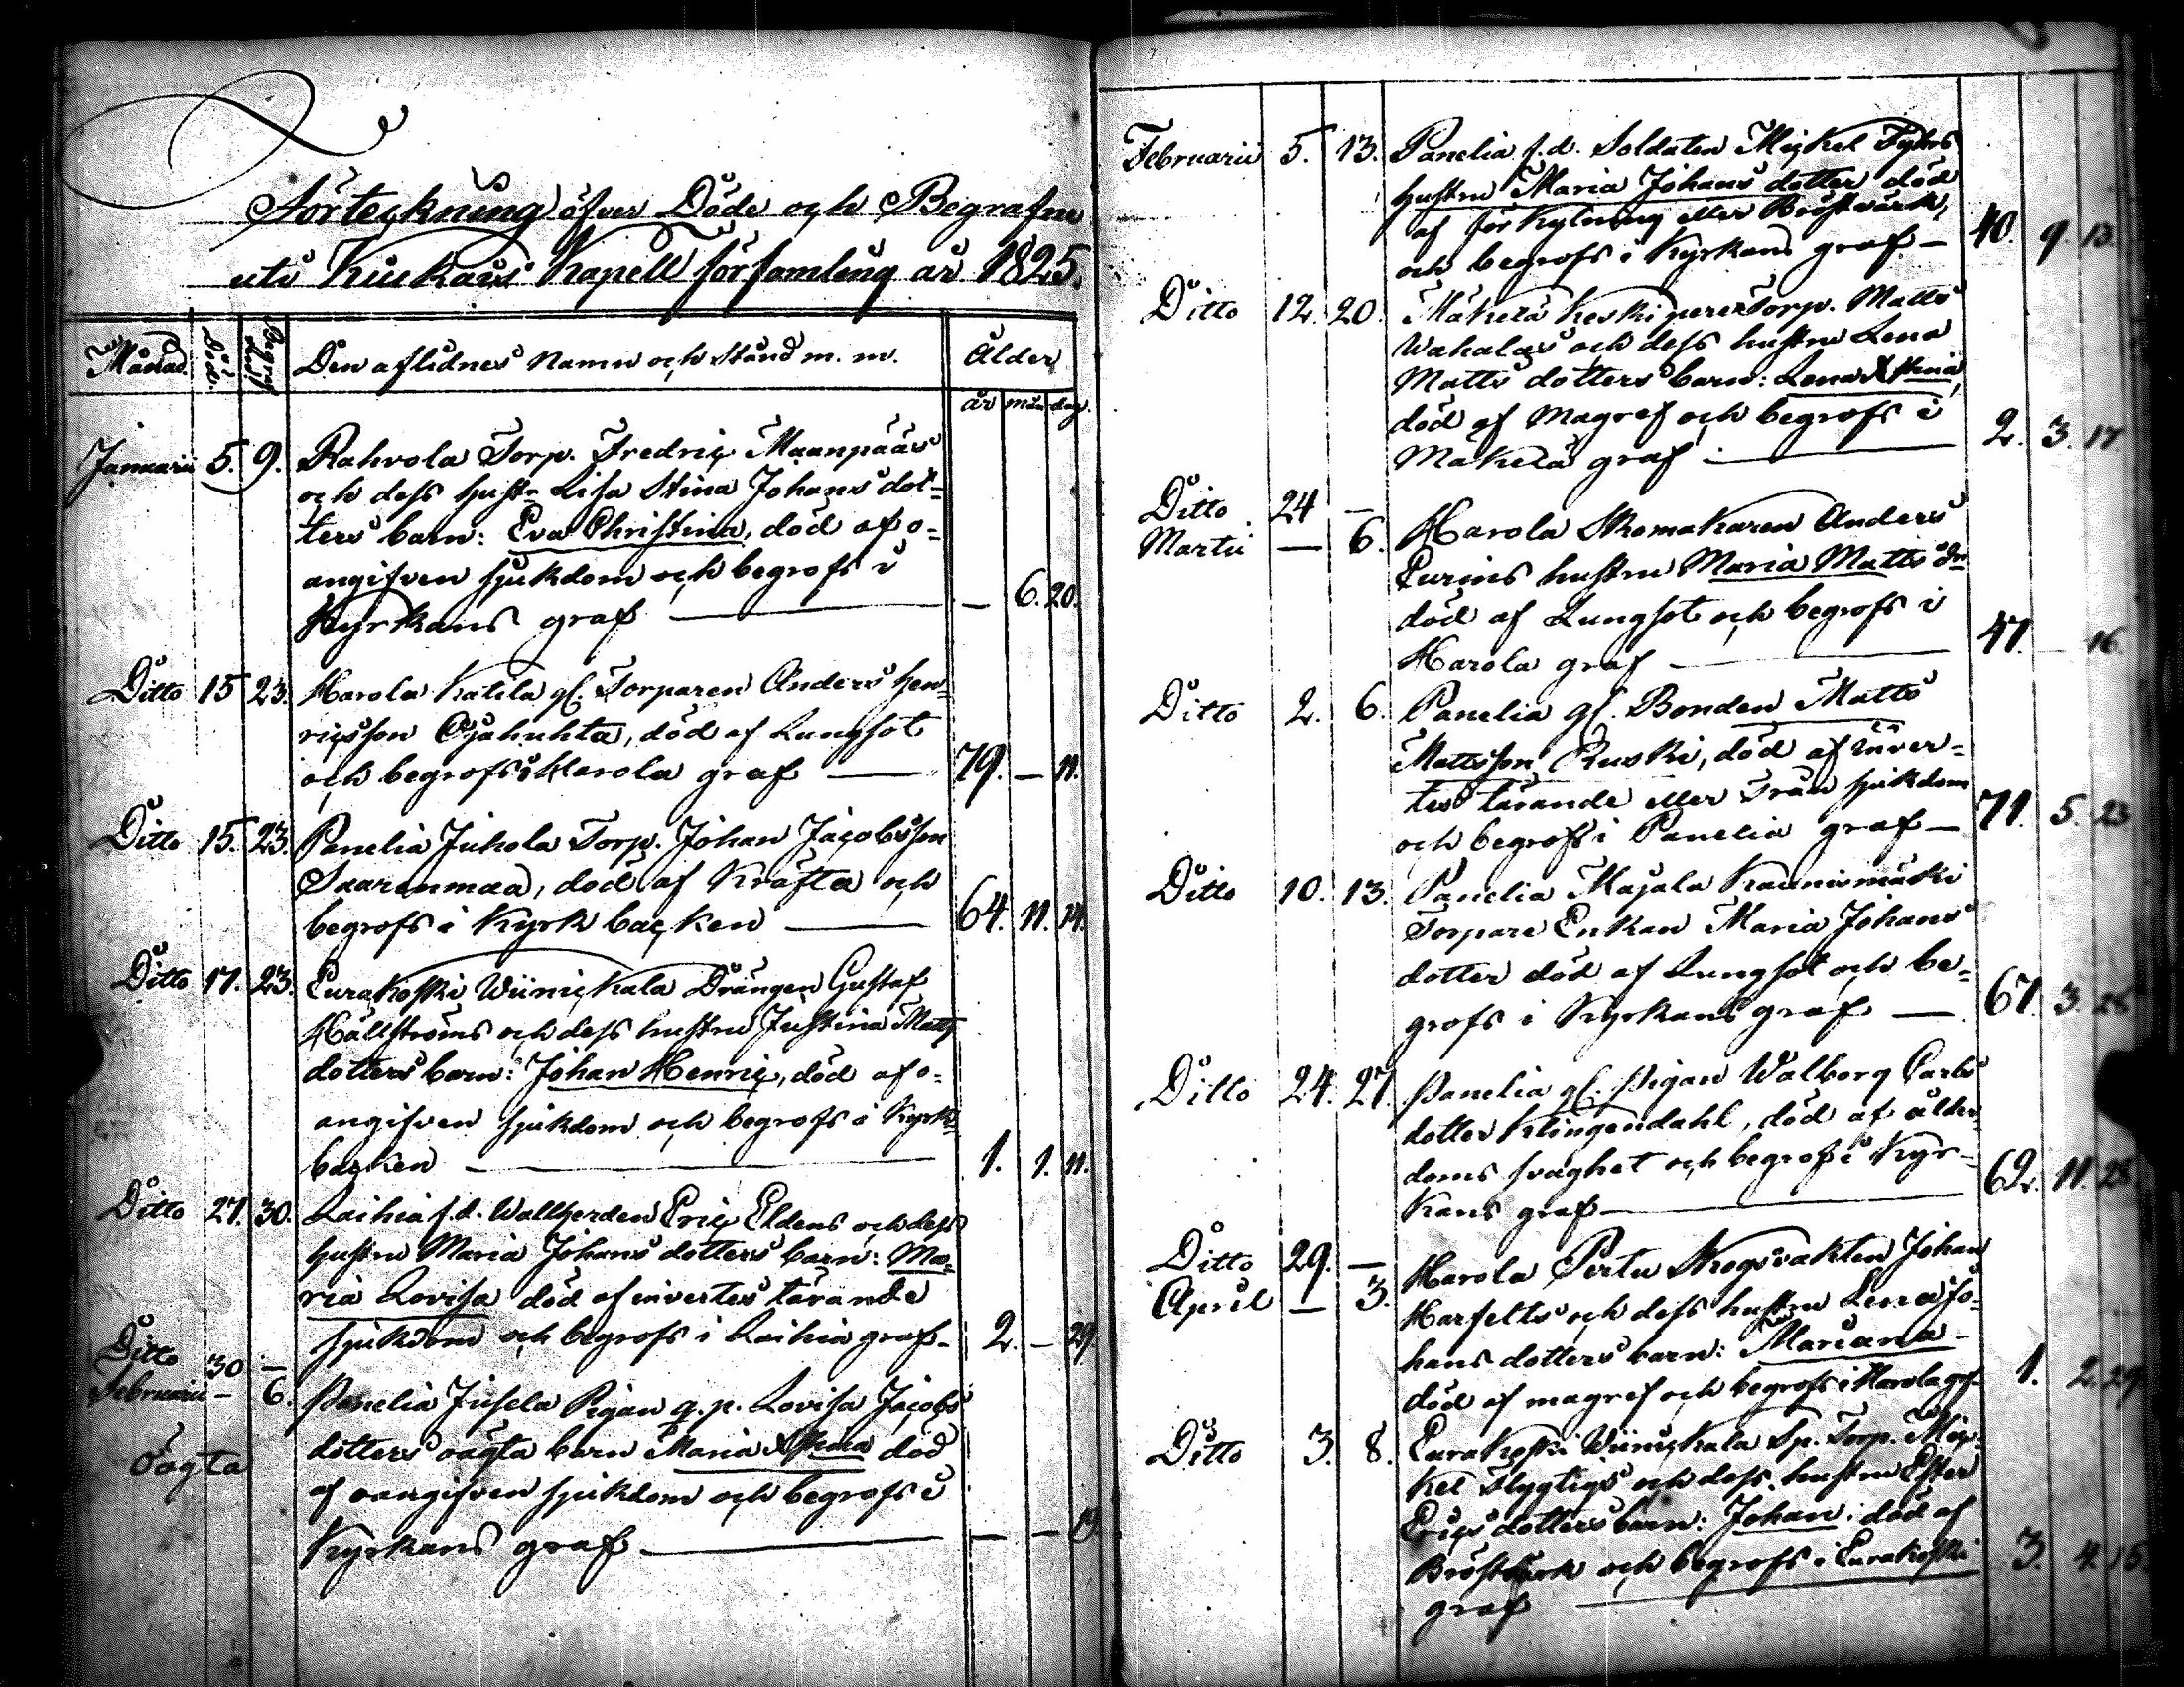 Förteckning öfver Döde och Begrafne
uti Kiukais Kapell församling år 1825.
Månad. Död. Begrafd. Den aflidnes Namn och Stånd m. m. Ålder
år mån dag.
Januarii 5. 9. Rahvola Torp. Fredric Maanpääs
och dess hustr Lisa Stina Johans dot-
ters barn: Eva Christina, död af o-
angifven sjukdom och begrofs i
Kyrkans graf — — 6. 20.
Ditto 15 23. Harola Katila gl. Torparen Anders Hen-
ricsson Ojahuhta, död af Lungsot
och begrofs i Harola graf — 79. — 11.
Ditto 15. 23. Panelia Juhola Torp. Johan Jacobsson
Saarenmaa, död af Kräfta och
begrofs i Kyrk backen — 64. 11. 14.
Ditto 17. 23. Eurakoski Wiinickala Drängen Gustaf
Hällströms och dess hustru Justina Matts
dotters barn: Johan Henric, död af o-
angifven sjukdom och begrofs i Kyrk-
backen — 1. 1. 11.
Ditto 27. 30. Laihia f.d. Wallherden Eric Eldens och dess
hustru Maria Johans dotters barn: Ma-
ria Lovisa död af invertes tärande
sjukdom och begrofs i Laihia graf. 2. — 29.
Ditto 30 —
Februarii — 6. Panelia Jusela Pigan q.p. Lovisa Jacobs
oägta
dotters oägta barn Maria Stina död
af oangifven sjukdom och begrofs i
Kyrkans graf — — — 19.
Februarii 5. 13. Panelia f.d. Soldaten Mickel
hustru Maria Johans dotter död
af förkylning eller Bröstvärk,
och begrofs i Kyrkans graf — 40. 9. 13.
Ditto 12. 20. Mäkelä Torp. Matts
Wahalas och dess hustru Lena
Matts dotters barn: Lena Stina,
död af Magref och begrofs i
Mäkelä graf — 2. 3. 17.
Ditto 24 —
Martii — 6. Harola Skomakaren Anders
Eurins hustru Maria Matts dr
död af Lungsot och begrofs i
Harola graf — 47. — 16.
Ditto 2. 6. Panelia gl. Bonden Matts
Mattsson Ruski, död af inver-
tes tärande eller Trån sjukdom
och begrofs i Panelia graf — 71. 5. 23
Ditto 10. 13. Panelia Majala Kaunismäki
Torpare Enkan Maria Johans
dotter död af Lungsot och be-
grofs i Kyrkans graf — 67. 3. 28
Ditto 24. 27. Panelia gl. Pigan Walborg Carls
dotter Klingendahl, död af ålder-
doms svaghet och begrofs i Kyr-
kans graf — 62. 11. 28.
Ditto 29. —
April — 3. Harola Pertu Skogsvakten Johan
Harfelts och dess hustru Lena Jo-
hans dotters barn: Mariana —
död af magref och begrofs i Harola grf. 1. 2. 29.
Ditto 3. 8. Eurakoski Wiinickala Sp. Torp. Mic-
kel Flygtigs och dess hustru Ester
Erics dotters barn: Johan, död af
Bröstvärk och begrofs i Eurakoski 3. 4. 15.
graf —